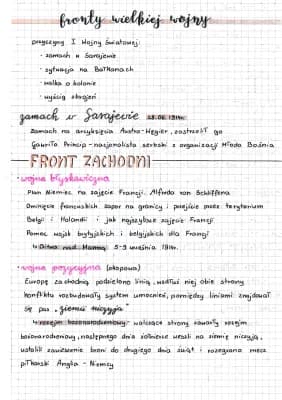 fronty wielkiej wojny
przyczyny I Wojny Światowej:
· zamach w Sarajewie
· sytuacja na Bałkanach
· walka o kolonie
· wyścig zbrojeń
zamach w Sarajewie 28.06.1914r.
Zamach na arcyksięcia Austro-Węgier, zastrzelił go
Gawriło Princip - nacjonalista serbski z organizacji Młoda Bośnia
FRONT ZACHODNI
· wojna błyskawiczna
Plan Niemiec na zajęcie Francji. Alfreda von Schlieffena
Ominięcie francuskich zapór na granicy i przejście przez terytorium
Belgii i Holandii i jak najszybsze zajęcie Francji
Pomoc wojsk brytyjskich i belgijskich dla Francji
↳ Bitwa nad Marną 5-9 września 1914r.
· wojna pozycyjna (okopowa)
Europę zachodnią podzielono linią, wzdłuż niej obie strony
konfliktu rozbudowały system umocnień, pomiędzy liniami znajdował
się pas „ziemi niczyja"
↳ rozejm bożonarodzeniowy - walczące strony zawarły rozejm
bożonarodzeniowy, następnego dnia żołnierze weszli na ziemię niczyją,
ustalili zawieszenie broni do drugiego dnia świąt i rozegrano mecz
piłkarski Anglia - Niemcy